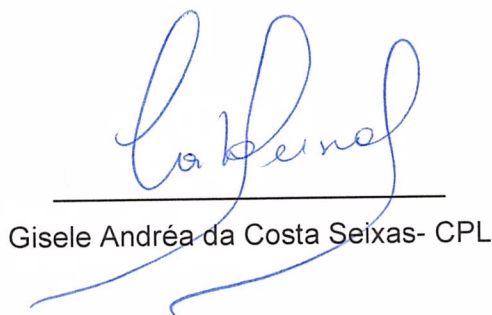 Gisele Andréa da Costa Seixas- CPL